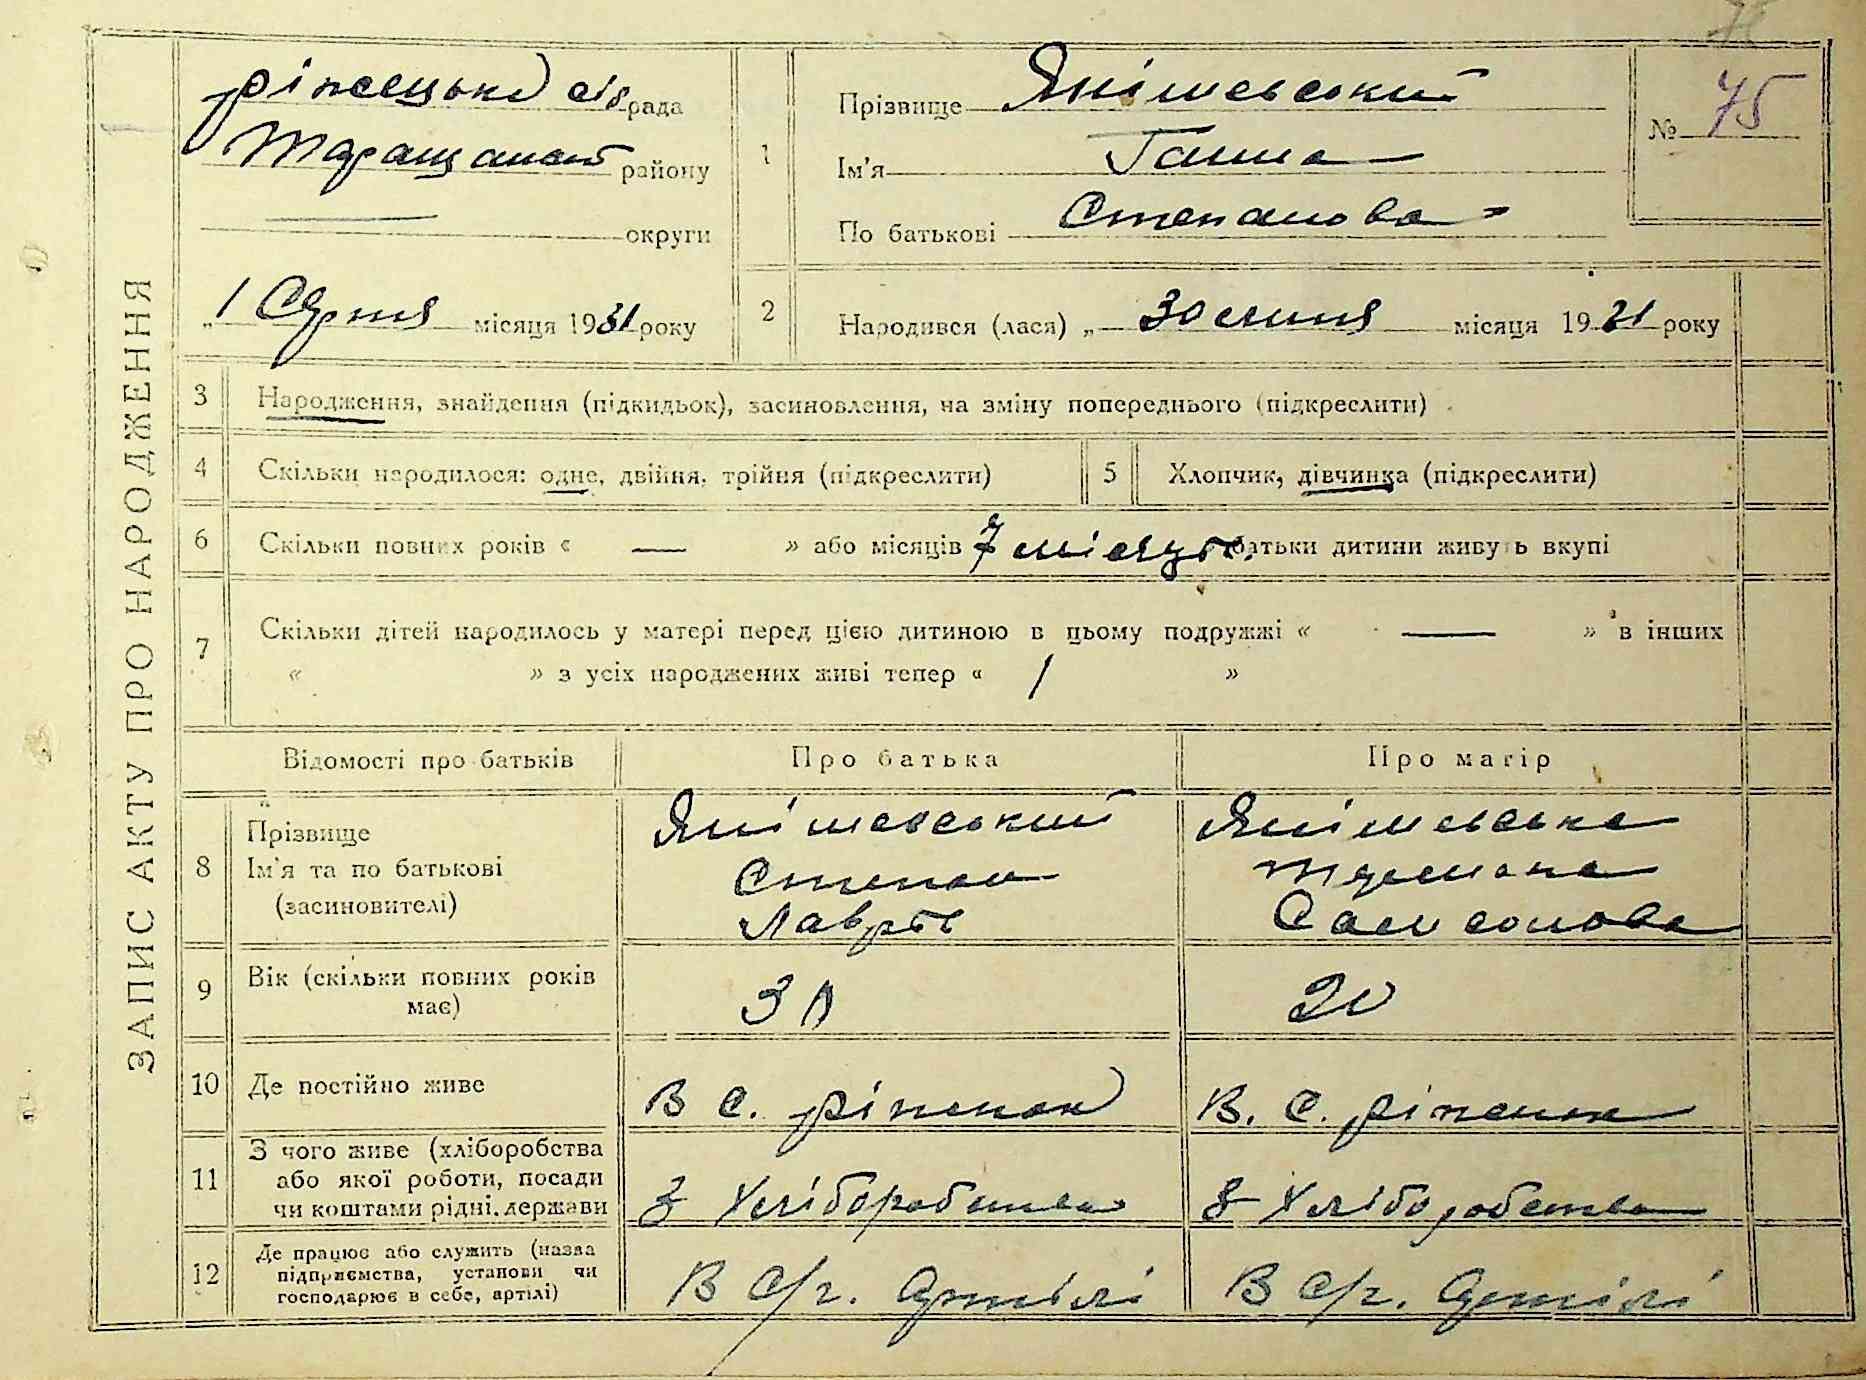 ЗАПИС АКТУ ПРО НАРОДЖЕННЯ
ріжецька сіврада
Таращанськ району
округи
„1 Серпня місяця 1931 року
1 Прізвище Янішевський
Ім'я Ганна
По батькові Степанова
№ 75
2 Народився (лася) „ 30 липня місяця 1931 року
3 Народження, знайдення (підкидьок), засиновлення, на зміну попереднього (підкреслити)
4 Скільки народилося: одне, двійня, трійня (підкреслити)
5 Хлопчик, дівчинка (підкреслити)
6 Скільки повних років « — » або місяців 7 місяців батьки дитини живуть вкупі
7 Скільки дітей народилось у матері перед цією дитиною в цьому подружжі « — » в інших
« » з усіх народжених живі тепер « 1 »
Відомості про батьків
Про батька
Про матір
8 Прізвище
Ім'я та по батькові
(засиновителі)
Янішевський
Степан
Лаврів
Янішевська
Самсонова
9 Вік (скільки повних років
має)
20
10 Де постійно живе
В с. ріженок
В. с. ріженок
11 З чого живе (хліборобства
або якої роботи, посади
чи коштами рідні, держави
З Хліборобства
З Хліборобства
12 Де працює або служить (назва
підприємства, установи чи
господарює в себе, артілі)
В с/г. Артілі
В с/г. Артілі